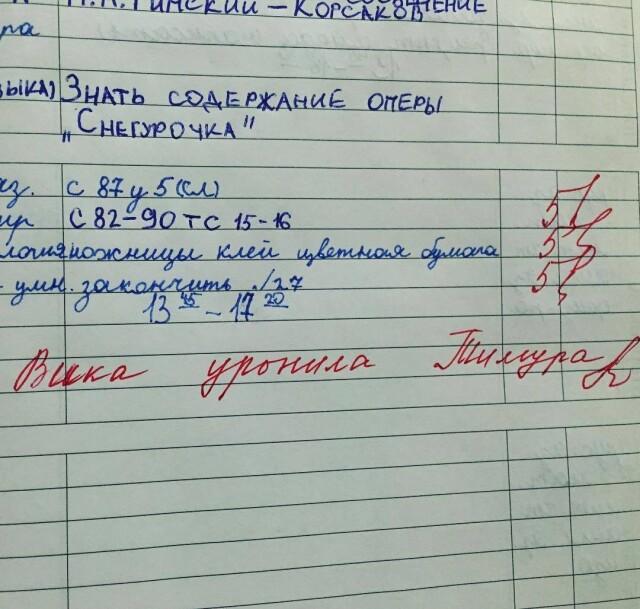 Н.А. РИМСКИЙ – КОРСАКОВ
ра
ЗЫКА) ЗНАТЬ СОДЕРЖАНИЕ ОПЕРЫ
„СНЕГУРОЧКА"
яз. с 87 у 5 (сл)
ир с 82-90 тс 15-16 5
логия ножницы клей цветная бумага 5
умн. закончить 5
13 45 – 17 20
Вика уронила Тимура